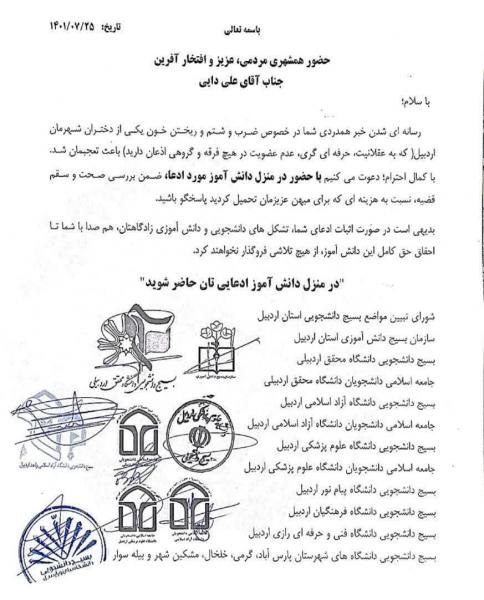 باسمه تعالی
تاریخ: ۱۴۰۱/۰۷/۲۵
حضور همشهری مردمی، عزیز و افتخار آفرین
جناب آقای علی دایی
با سلام؛
رسانه ای شدن خبر همدردی شما در خصوص ضرب و شتم و ریختن خون یکی از دختران شهرمان
اردبیل( که به عقلانیت، حرفه ای گری، عدم عضویت در هیچ فرقه و گروهی اذعان دارید) باعث تعجبمان شد.
با کمال احترام؛ دعوت می کنیم با حضور در منزل دانش آموز مورد ادعا، ضمن بررسی صحت و سقم
قضیه، نسبت به هزینه ای که برای میهن عزیزمان تحمیل کردید پاسخگو باشید.
بدیهی است در صورت اثبات ادعای شما، تشکل های دانشجویی و دانش آموزی زادگاهتان، هم صدا با شما تا
احقاق حق کامل این دانش آموز، از هیچ تلاشی فروگذار نخواهند کرد.
"در منزل دانش آموز ادعایی تان حاضر شوید"
شورای تبیین مواضع بسیج دانشجویی استان اردبیل
سازمان بسیج دانش آموزی استان اردبیل
بسیج دانشجویی دانشگاه محقق اردبیلی
جامعه اسلامی دانشجویان دانشگاه محقق اردبیلی
بسیج دانشجویی دانشگاه آزاد اسلامی اردبیل
جامعه اسلامی دانشجویان دانشگاه آزاد اسلامی اردبیل
بسیج دانشجویی دانشگاه علوم پزشکی اردبیل
جامعه اسلامی دانشجویان دانشگاه علوم پزشکی اردبیل
بسیج دانشجویی دانشگاه پیام نور اردبیل
بسیج دانشجویی دانشگاه فرهنگیان اردبیل
بسیج دانشجویی دانشگاه فنی و حرفه ای رازی اردبیل
بسیج دانشجویی دانشگاه های شهرستان پارس آباد، گرمی، خلخال، مشکین شهر و بیله سوار
بسیج دانشجویی دانشگاه محقق اردبیلی
بسیج دانشجویی دانشگاه آزاد اسلامی واحد اردبیل
بسیج دانشجویی